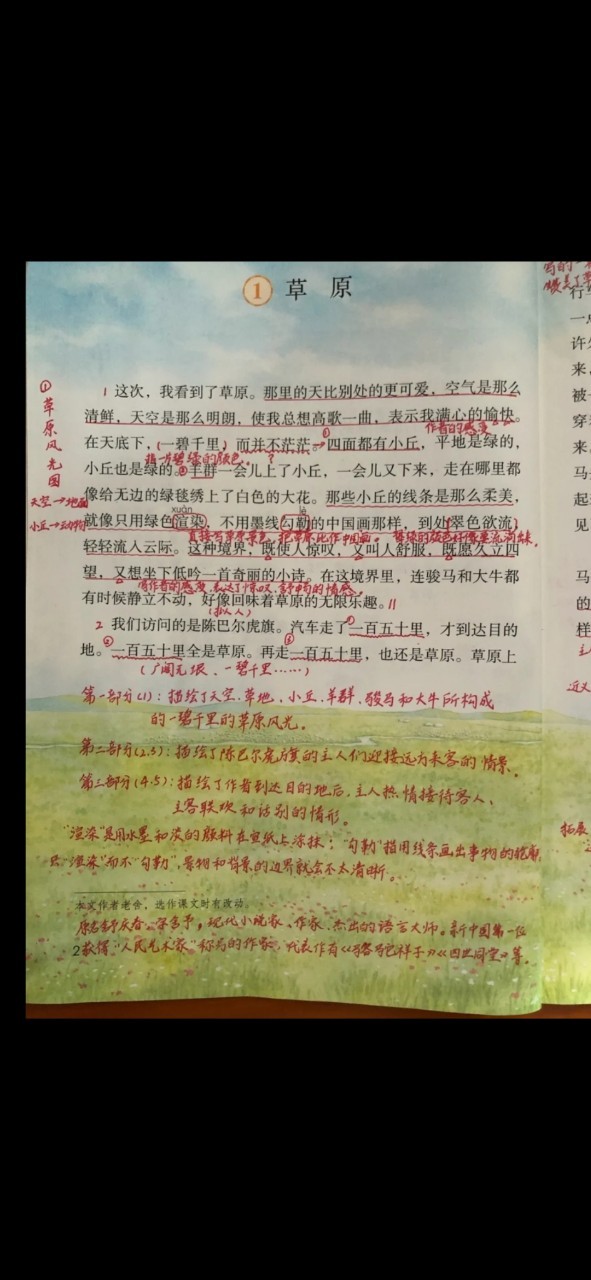 1 草原
写的
1 这次，我看到了草原。那里的天比别处的更可爱，空气是那么
清鲜，天空是那么明朗，使我总想高歌一曲，表示我满心的愉快。
作者的感受
在天底下，一碧千里，而并不茫茫。①四面都有小丘，平地是绿的，
指一片碧绿的颜色。 ?
小丘也是绿的。②羊群一会儿上了小丘，一会儿又下来，走在哪里都
像给无边的绿毯绣上了白色的大花。那些小丘的线条是那么柔美，
xuàn lè
就像只用绿色渲染，不用墨线勾勒的中国画那样，到处翠色欲流，
直接写草原景色，把草原比作中国画。 碧绿的颜色好像要流淌出来。
轻轻流入云际。这种境界，既使人惊叹，又叫人舒服，既愿久立四
望，又想坐下低吟一首奇丽的小诗。在这境界里，连骏马和大牛都
写作者的感受，表达了惊叹、舒畅的情感。
有时候静立不动，好像回味着草原的无限乐趣。∥
（拟人）
2 我们访问的是陈巴尔虎旗。汽车走了①一百五十里，才到达目的
地。②一百五十里全是草原。再走③一百五十里，也还是草原。草原上
（广阔无垠、一碧千里……）
①草原风光图
天空→地面
小丘→动物
第一部分(1)：描绘了天空、草地、小丘、羊群、骏马和大牛所构成
的一碧千里的草原风光。
第二部分(2.3)：描绘了陈巴尔虎旗的主人们迎接远方来客的情景。
第三部分(4.5)：描绘了作者到达目的地后，主人热情接待客人、
主客联欢和话别的情形。
“渲染”是用水墨和淡的颜料在宣纸上涂抹；“勾勒”指用线条画出事物的轮廓，
只“渲染”而不“勾勒”，景物和背景的边界就会不太清晰。
本文作者老舍，选作课文时有改动。
原名舒庆春，字舍予，现代小说家、作家、杰出的语言大师。新中国第一位
获得“人民艺术家”称号的作家，代表作有《骆驼祥子》《四世同堂》等。
2
行
一点
许久
来，
被
穿
来。
马
起
见
马
的
样
近义
拓展